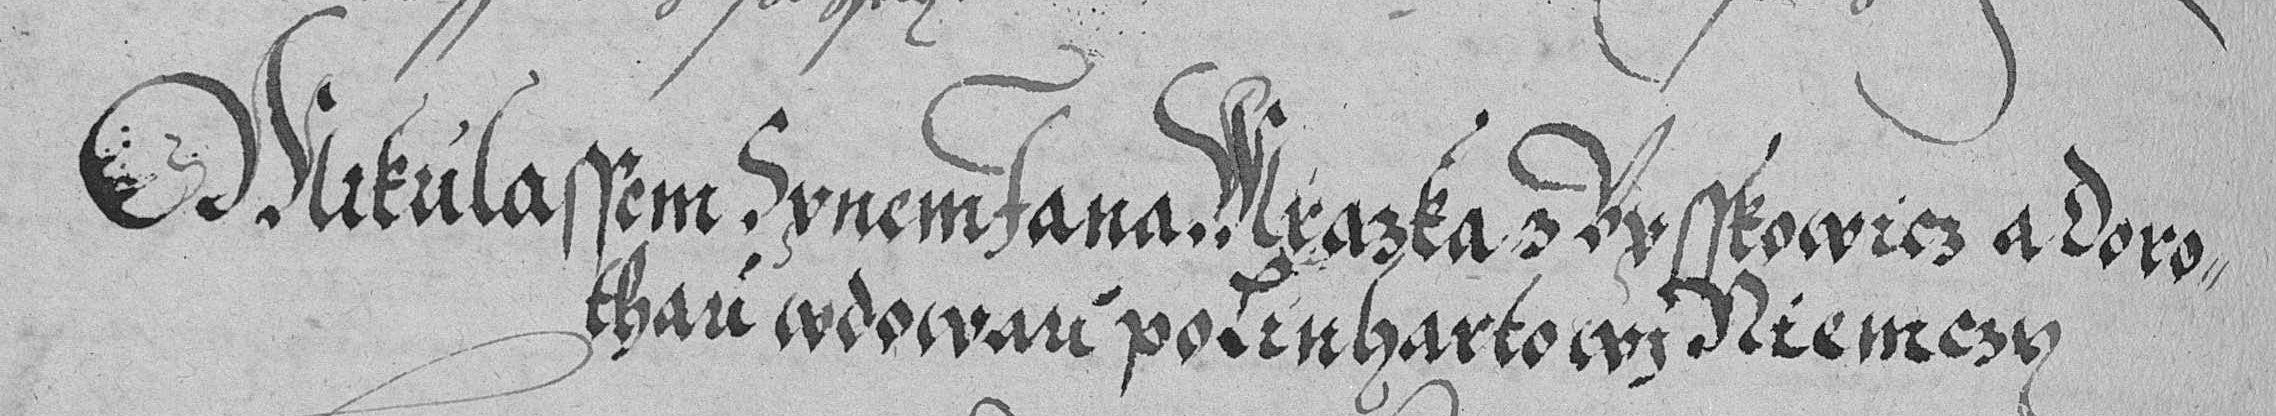 Mikulassem Synem Jana Mrazka z Vysskowicz a Doro„
thaú wdowaú po Linhartowj Niemczy